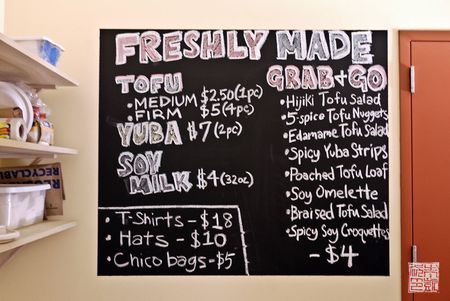 FRESHLY MADE
TOFU
• MEDIUM $2.50 (1pc)
• FIRM $5 (4pc)
YUBA $7 (2pc)
SOY
MILK $4 (32oz)
• T-Shirts - $18
• Hats - $10
• Chico bags - $5
GRAB + GO
• Hijiki Tofu Salad
• 5-spice Tofu Nuggets
• Edamame Tofu Salad
• Spicy Yuba Strips
• Poached Tofu Loaf
• Soy Omelette
• Braised Tofu Salad
• Spicy Soy Croquettes
- $4
RECYC